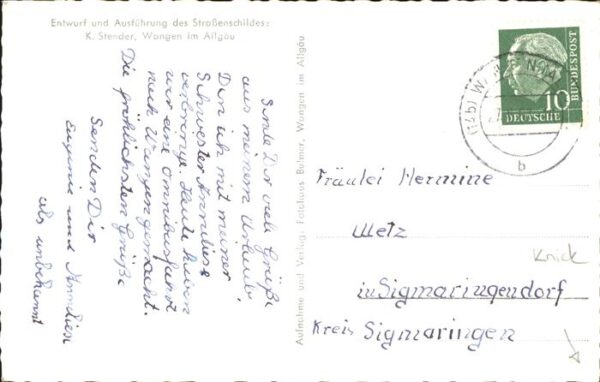 Entwurf und Ausführung des Straßenschildes:
K. Stender, Wangen im Allgäu
Sende Dir viele Grüße
aus meinem Urlaub,
Den ich mit meiner
Schwester Anneliese
verbringe. Heute haben
wir eine Omnibusfahrt
nach Wangen gemacht.
Die herzlichsten Grüße
Senden Dir
Eugenie und Anneliese
als unbekannt
Aufnahme und Verlag: Fotohaus Wangen im Allgäu
(14b) WANGEN
b
DEUTSCHE
BUNDESPOST
10
Fräulei Hermine
Metz
in Sigmaringendorf
Kreis Sigmaringen
Knick